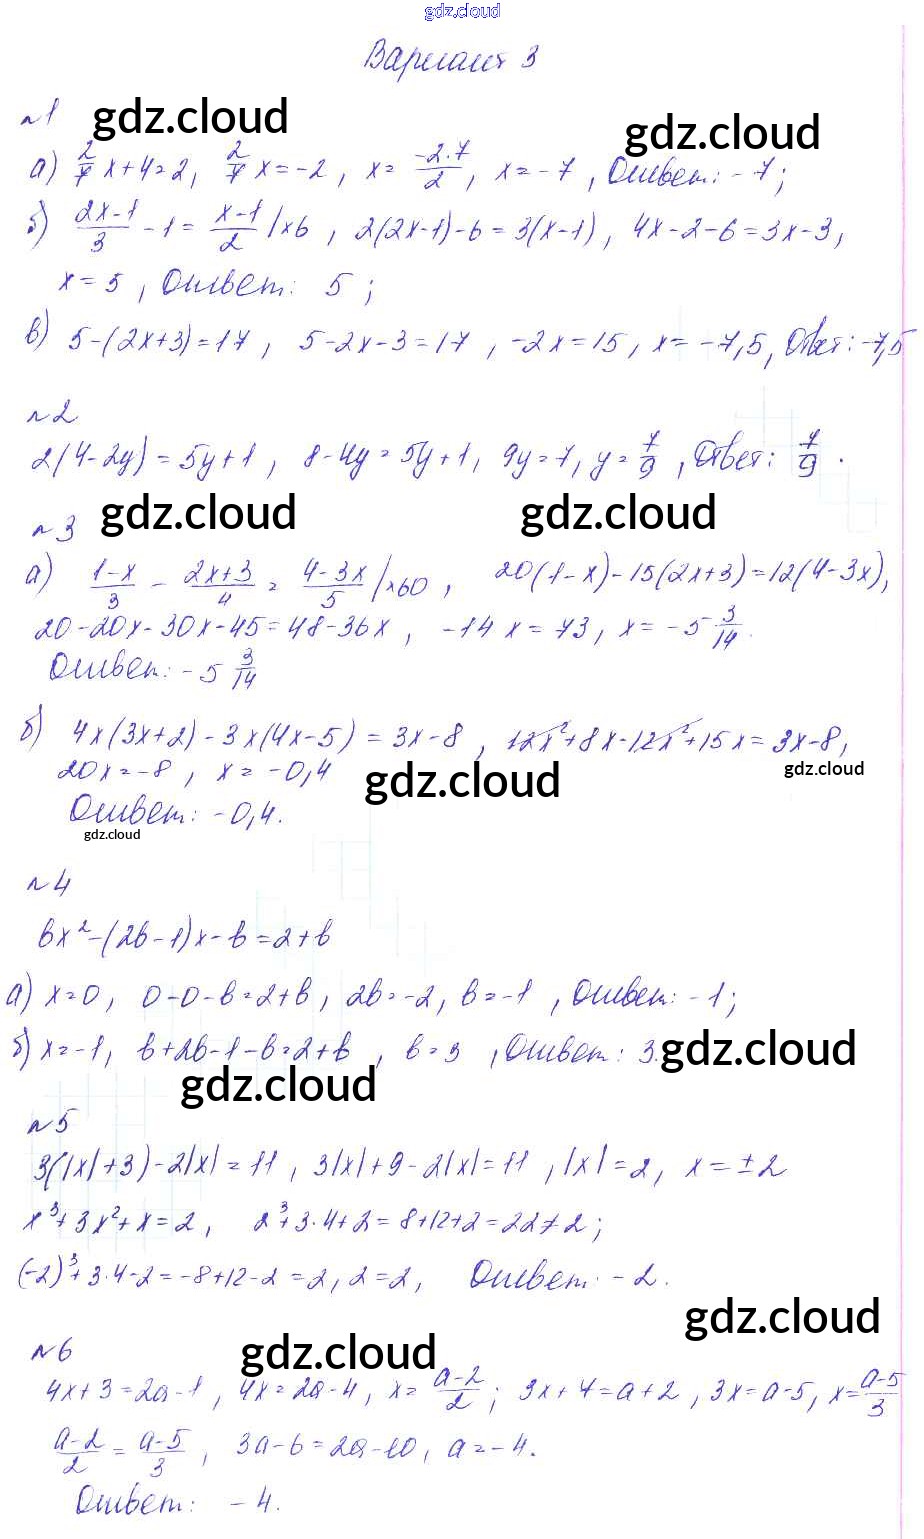 gdz.cloud
Вариант 3
№1 gdz.cloud gdz.cloud
а) 2/7 x+4=2, 2/7 x=-2, x= -2·7/2, x=-7, Ответ: -7;
б) 2x-1/3 -1= x-1/2 |×6, 2(2x-1)-6=3(x-1), 4x-2-6=3x-3,
x=5, Ответ: 5;
в) 5-(2x+3)=17, 5-2x-3=17, -2x=15, x=-7,5, Ответ: -7,5
№2
2(4-2y)=5y+1, 8-4y=5y+1, 9y=7, y=7/9, Ответ: 7/9.
№3 gdz.cloud gdz.cloud
а) 1-x/3 - 2x+3/4 = 4-3x/5 |×60, 20(1-x)-15(2x+3)=12(4-3x),
20-20x-30x-45=48-36x, -14x=73, x=-5 3/14.
Ответ: -5 3/14
б) 4x(3x+2)-3x(4x-5)=3x-8, 12x²+8x-12x²+15x=3x-8,
20x=-8, x=-0,4 gdz.cloud gdz.cloud
Ответ: -0,4.
gdz.cloud
№4
bx²-(2b-1)x-b=2+b
а) x=0, 0-0-b=2+b, 2b=-2, b=-1, Ответ: -1;
б) x=-1, b+2b-1-b=2+b, b=3, Ответ: 3. gdz.cloud
gdz.cloud
№5
3(|x|+3)-2|x|=11, 3|x|+9-2|x|=11, |x|=2, x=±2
x³+3x²+x=2, 2³+3·4+2=8+12+2=22≠2;
(-2)³+3·4-2=-8+12-2=2, 2=2, Ответ: -2.
gdz.cloud
№6 gdz.cloud
4x+3=2a-1, 4x=2a-4, x= a-2/2; 3x+7=a+2, 3x=a-5, x= a-5/3
a-2/2 = a-5/3, 3a-6=2a-10, a=-4.
Ответ: -4.